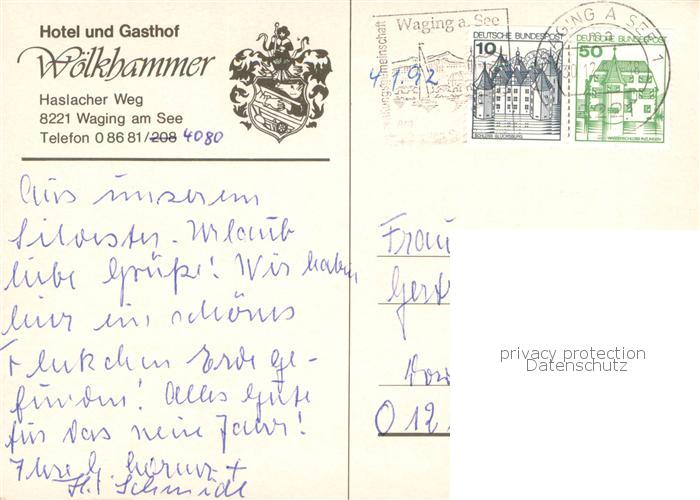 Hotel und Gasthof
Wölkhammer
Haslacher Weg
8221 Waging am See
Telefon 0 86 81/208 4080
Waging a. See
4.1.92
DEUTSCHE BUNDESPOST
10
SCHLOSS GLÜCKSBURG
DEUTSCHE BUNDESPOST
50
WASSERSCHLOSS INZLINGEN
WAGING A SEE 1
Aus unserem
Silvester-Urlaub
liebe Grüße! Wir haben
hier ein schönes
Fleckchen Erde ge-
funden! Alles Gute
für das neue Jahr!
Ihre
Schmidt
Frau
O 12
privacy protection
Datenschutz